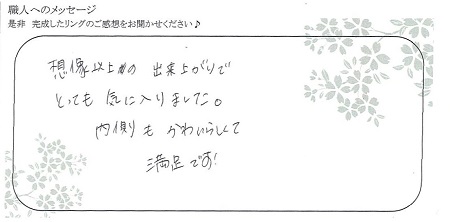 職人へのメッセージ
是非 完成したリングのご感想をお聞かせください♪
想像以上の 出来上がりで
とっても 気に入りました。
内側も かわいらしくて
満足です!